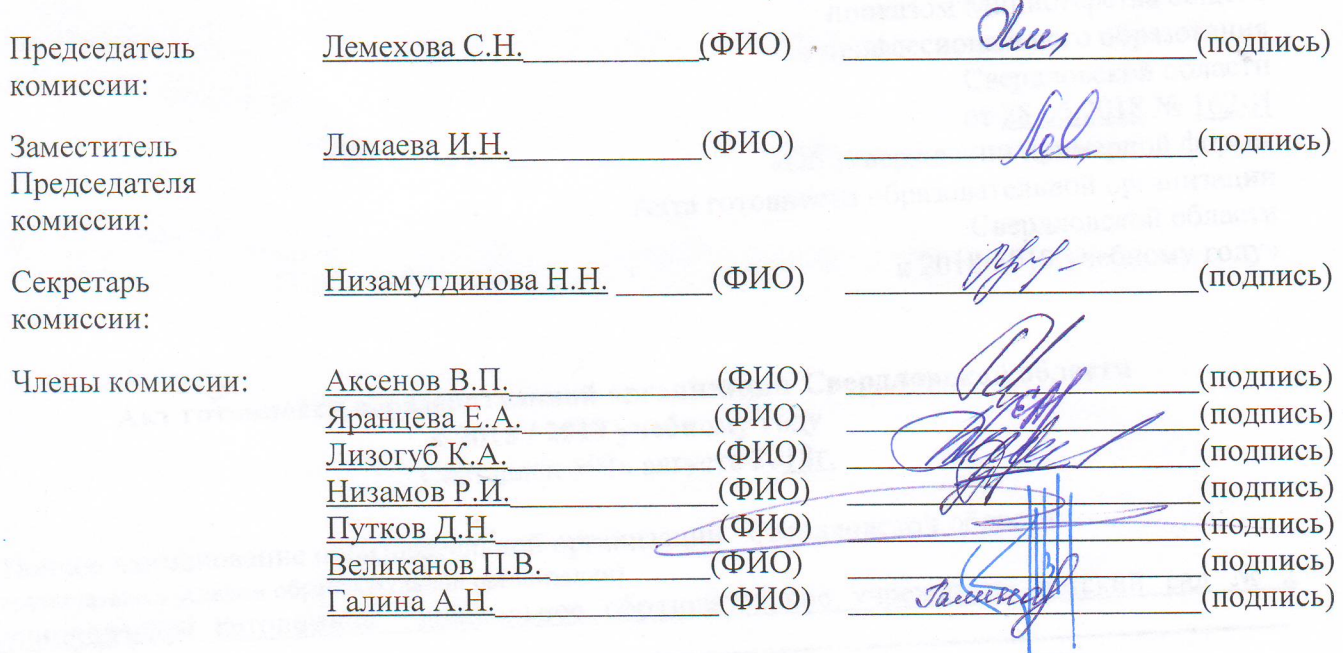 Председатель комиссии: Лемехова С.Н.____________ (ФИО) ____________ (подпись)
Заместитель Председателя комиссии: Ломаева И.Н.____________ (ФИО) ____________ (подпись)
Секретарь комиссии: Низамутдинова Н.Н. ______ (ФИО) ____________ (подпись)
Члены комиссии: Аксенов В.П.____________ (ФИО) ____________ (подпись)
Яранцева Е.А.____________ (ФИО) ____________ (подпись)
Лизогуб К.А.____________ (ФИО) ____________ (подпись)
Низамов Р.И.____________ (ФИО) ____________ (подпись)
Путков Д.Н.____________ (ФИО) ____________ (подпись)
Великанов П.В.____________ (ФИО) ____________ (подпись)
Галина А.Н.____________ (ФИО) ____________ (подпись)